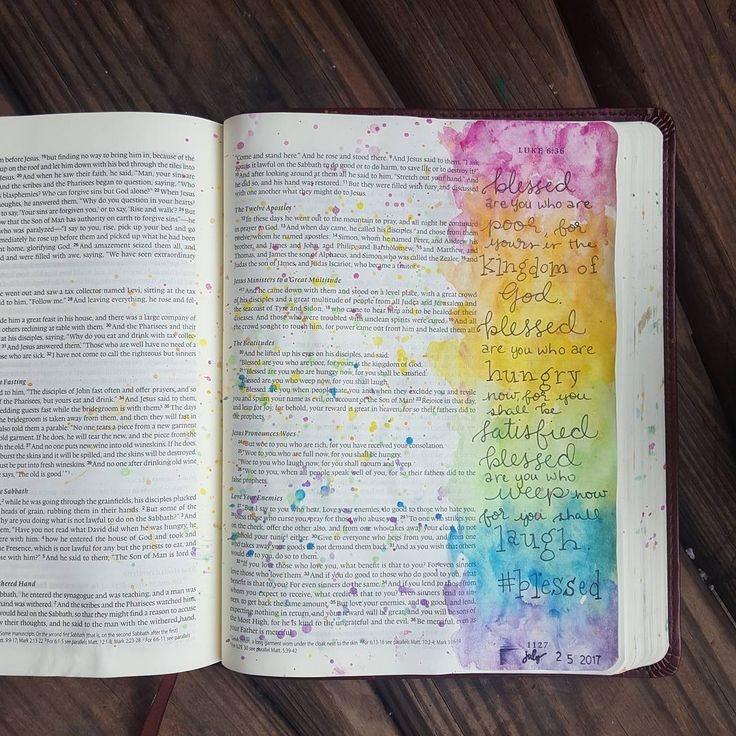 m before Jesus. 19 but finding no way to bring him in, because of the
up on the roof and let him down with his bed through the tiles into
20 And when he saw their faith, he said, "Man, your sins are
And the scribes and the Pharisees began to question, saying, "Who
blasphemies? Who can forgive sins but God alone?" 22 When Jesus
thoughts, he answered them, "Why do you question in your hearts?
to say, 'Your sins are forgiven you,' or to say, 'Rise and walk'? 24 But
ow that the Son of Man has authority on earth to forgive sins"—he
who was paralyzed—"I say to you, rise, pick up your bed and go
mediately he rose up before them and picked up what he had been
nt home, glorifying God. 26 And amazement seized them all, and
and were filled with awe, saying, "We have seen extraordinary
went out and saw a tax collector named Levi, sitting at the tax
d to him, "Follow me." 28 And leaving everything, he rose and fol-
de him a great feast in his house, and there was a large company of
others reclining at table with them. 30 And the Pharisees and their
at his disciples, saying, "Why do you eat and drink with tax collec-
31 And Jesus answered them, "Those who are well have no need of a
se who are sick. 32 I have not come to call the righteous but sinners
t Fasting
d to him, "The disciples of John fast often and offer prayers, and so
the Pharisees, but yours eat and drink." 34 And Jesus said to them,
edding guests fast while the bridegroom is with them? 35 The days
the bridegroom is taken away from them, and then they will fast in
also told them a parable: "No one tears a piece from a new garment
old garment. If he does, he will tear the new, and the piece from the
the old. 37 And no one puts new wine into old wineskins. If he does,
burst the skins and it will be spilled, and the skins will be destroyed.
ust be put into fresh wineskins. 39 And no one after drinking old wine
e says, 'The old is good.'"
e Sabbath
while he was going through the grainfields, his disciples plucked
heads of grain, rubbing them in their hands. 2 But some of the
hy are you doing what is not lawful to do on the Sabbath?" 3 And
em, "Have you not read what David did when he was hungry, he
ere with him: 4 how he entered the house of God and took and
e Presence, which is not lawful for any but the priests to eat, and
se with him?" 5 And he said to them, "The Son of Man is lord of
thered Hand
abbath, he entered the synagogue and was teaching, and a man was
hand was withered. 7 And the scribes and the Pharisees watched him,
would heal on the Sabbath, so that they might find a reason to accuse
w their thoughts, and he said to the man with the withered hand,
Some manuscripts On the second first Sabbath (that is, on the second Sabbath after the first)
"Come and stand here." And he rose and stood there. 9 And Jesus said to them, "I ask
you, is it lawful on the Sabbath to do good or to do harm, to save life or to destroy it?"
10 And after looking around at them all he said to him, "Stretch out your hand." And
he did so, and his hand was restored. 11 But they were filled with fury and discussed
with one another what they might do to Jesus.
The Twelve Apostles
12 In these days he went out to the mountain to pray, and all night he continued
in prayer to God. 13 And when day came, he called his disciples and chose from them
twelve, whom he named apostles: 14 Simon, whom he named Peter, and Andrew his
brother, and James and John, and Philip, and Bartholomew, 15 and Matthew, and
Thomas, and James the son of Alphaeus, and Simon who was called the Zealot, 16 and
Judas the son of James, and Judas Iscariot, who became a traitor.
Jesus Ministers to a Great Multitude
17 And he came down with them and stood on a level place, with a great crowd
of his disciples and a great multitude of people from all Judea and Jerusalem and
the seacoast of Tyre and Sidon, 18 who came to hear him and to be healed of their
diseases. And those who were troubled with unclean spirits were cured. 19 And all
the crowd sought to touch him, for power came out from him and healed them all.
The Beatitudes
20 And he lifted up his eyes on his disciples, and said:
"Blessed are you who are poor, for yours is the kingdom of God.
21 "Blessed are you who are hungry now, for you shall be satisfied.
"Blessed are you who weep now, for you shall laugh.
22 "Blessed are you when people hate you and when they exclude you and revile
you and spurn your name as evil, on account of the Son of Man! 23 Rejoice in that day,
and leap for joy, for behold, your reward is great in heaven; for so their fathers did to
the prophets.
Jesus Pronounces Woes
24 "But woe to you who are rich, for you have received your consolation.
25 "Woe to you who are full now, for you shall be hungry.
"Woe to you who laugh now, for you shall mourn and weep.
26 "Woe to you, when all people speak well of you, for so their fathers did to the
false prophets.
Love Your Enemies
27 "But I say to you who hear, Love your enemies, do good to those who hate you,
28 bless those who curse you, pray for those who abuse you. 29 To one who strikes you
on the cheek, offer the other also, and from one who takes away your cloak do not
withhold your tunic either. 30 Give to everyone who begs from you, and from one
who takes away your goods do not demand them back. 31 And as you wish that others
would do to you, do so to them.
32 "If you love those who love you, what benefit is that to you? For even sinners
love those who love them. 33 And if you do good to those who do good to you, what
benefit is that to you? For even sinners do the same. 34 And if you lend to those from
whom you expect to receive, what credit is that to you? Even sinners lend to sin-
ners, to get back the same amount. 35 But love your enemies, and do good, and lend,
expecting nothing in return, and your reward will be great, and you will be sons of
the Most High, for he is kind to the ungrateful and the evil. 36 Be merciful, even as
your Father is merciful.
LUKE 6:36
blessed
are you who are
poor, for
yours is the
kingdom of
God.
blessed
are you who are
hungry
now, for you
shall be
satisfied
blessed
are you who
weep now
for you shall
laugh.
#blessed
1127
July 25 2017